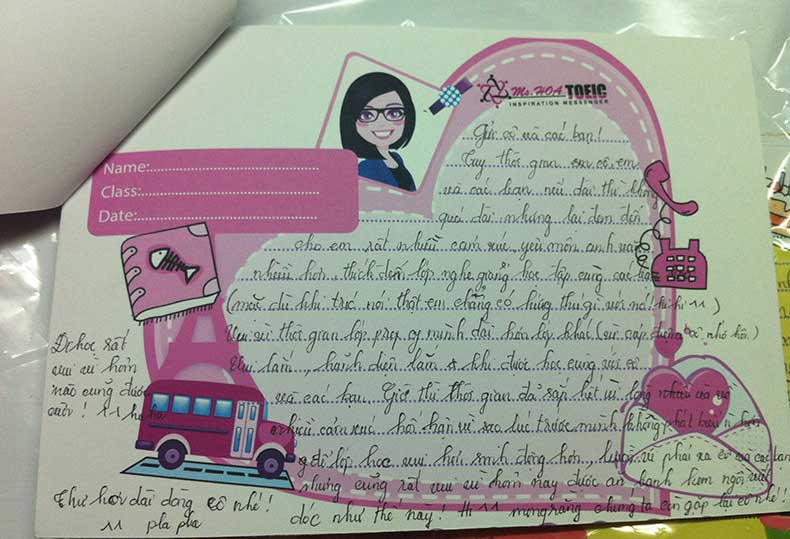 Ms. HOA TOEIC
INSPIRATION MESSENGER
Name:
Class:
Date:
Gửi cô và các bạn!
Tuy thời gian em cô, em
và các bạn nữa dài thì không
quá dài nhưng lại đem đến
cho em rất nhiều cảm xúc, yêu môn anh văn
nhiều hơn, thích đến lớp nghe giảng, học tập cùng các bạn
(mặc dù khi trước nói thật em chẳng có hứng thú gì với nó! hi hi 11)
Vui vì thời gian lớp prep cj mình dài hơn lớp khác (vì cúp điện ... cô nhỏ hôi.)
Vui lắm, hãnh diện lắm khi được học cùng với cô
và các bạn. Giờ thì thời gian đã sắp hết rồi lòng nhiều
nhiều cảm xúc, hối hận vì sao lúc trước mình không phát biểu nhiều hơn
để lớp học vui hơi sinh động hơn, buồn vì phải xa cô và các bạn
nhưng cũng rất vui vì hôm nay được ăn bánh kem ngồi viết
dóc như thế này! Hi 11 mong rằng chúng ta còn gặp lại cô nhé!
Đi học rất
vui vì hôm
nào cũng được
cười! 11 ha ha
Thư hơi dài dòng cô nhé!
11 pla pla